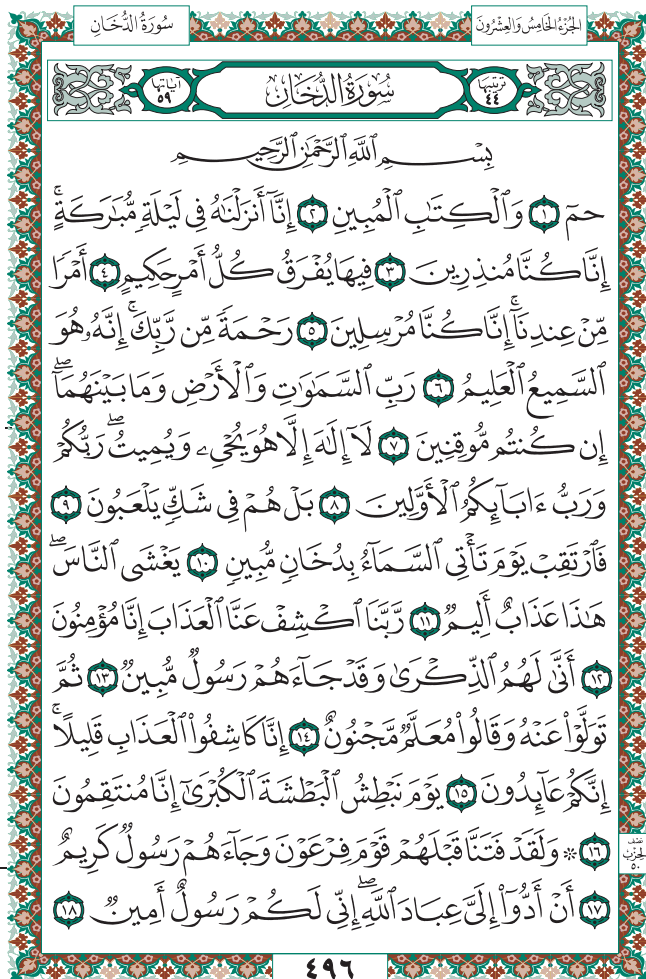 سُورَةُ الدُّخَانِ
الجُزْءُ الخَامِسُ وَالعِشْرُونَ
ترتيبها ٤٤
سُورَةُ الدُّخَانِ
آياتها ٥٩
بِسْمِ ٱللَّهِ ٱلرَّحْمَٰنِ ٱلرَّحِيمِ
حمٓ ١ وَٱلْكِتَٰبِ ٱلْمُبِينِ ٢ إِنَّآ أَنزَلْنَٰهُ فِى لَيْلَةٍ مُّبَٰرَكَةٍۚ
إِنَّا كُنَّا مُنذِرِينَ ٣ فِيهَا يُفْرَقُ كُلُّ أَمْرٍ حَكِيمٍ ٤ أَمْرًا
مِّنْ عِندِنَآۚ إِنَّا كُنَّا مُرْسِلِينَ ٥ رَحْمَةً مِّن رَّبِّكَۚ إِنَّهُۥ هُوَ
ٱلسَّمِيعُ ٱلْعَلِيمُ ٦ رَبِّ ٱلسَّمَٰوَٰتِ وَٱلْأَرْضِ وَمَا بَيْنَهُمَآۖ
إِن كُنتُم مُّوقِنِينَ ٧ لَآ إِلَٰهَ إِلَّا هُوَ يُحْىِۦ وَيُمِيتُۖ رَبُّكُمْ
وَرَبُّ ءَابَآئِكُمُ ٱلْأَوَّلِينَ ٨ بَلْ هُمْ فِى شَكٍّ يَلْعَبُونَ ٩
فَٱرْتَقِبْ يَوْمَ تَأْتِى ٱلسَّمَآءُ بِدُخَانٍ مُّبِينٍ ١٠ يَغْشَى ٱلنَّاسَۖ
هَٰذَا عَذَابٌ أَلِيمٌ ١١ رَّبَّنَا ٱكْشِفْ عَنَّا ٱلْعَذَابَ إِنَّا مُؤْمِنُونَ
١٢ أَنَّىٰ لَهُمُ ٱلذِّكْرَىٰ وَقَدْ جَآءَهُمْ رَسُولٌ مُّبِينٌ ١٣ ثُمَّ
تَوَلَّوْا۟ عَنْهُ وَقَالُوا۟ مُعَلَّمٌ مَّجْنُونٌ ١٤ إِنَّا كَاشِفُوا۟ ٱلْعَذَابِ قَلِيلًاۚ
إِنَّكُمْ عَآئِدُونَ ١٥ يَوْمَ نَبْطِشُ ٱلْبَطْشَةَ ٱلْكُبْرَىٰٓ إِنَّا مُنتَقِمُونَ
١٦ ۞ وَلَقَدْ فَتَنَّا قَبْلَهُمْ قَوْمَ فِرْعَوْنَ وَجَآءَهُمْ رَسُولٌ كَرِيمٌ
نصف الحزب ٥٠
١٧ أَنْ أَدُّوٓا۟ إِلَىَّ عِبَادَ ٱللَّهِۖ إِنِّى لَكُمْ رَسُولٌ أَمِينٌ ١٨
٤٩٦